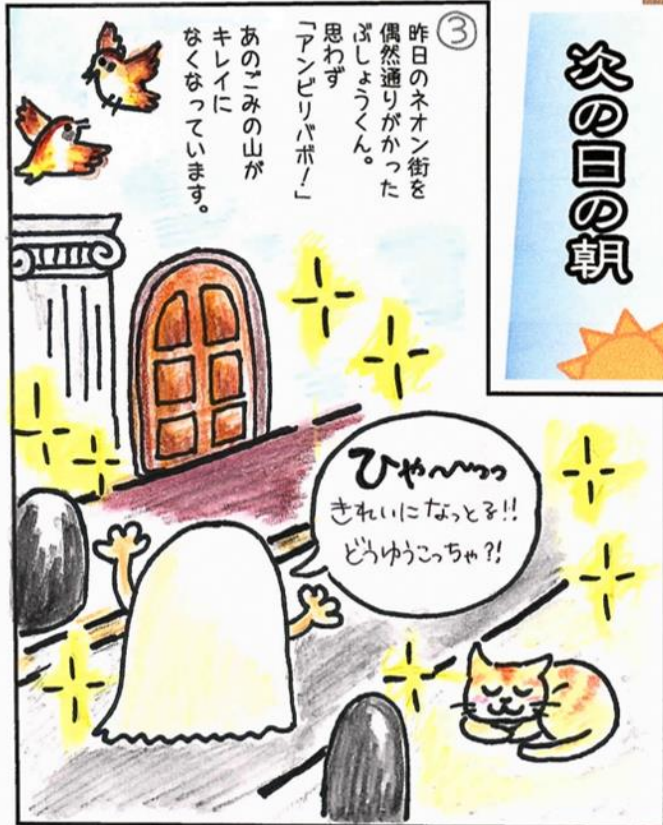 次の日の朝
③
昨日のネオン街を
偶然通りがかった
ぶしょうくん。
思わず
「アンビリバボ！」
あのごみの山が
キレイに
なくなっています。
ひゃ〜〜っっ
きれいになっとる!!
どうゆうこっちゃ?!